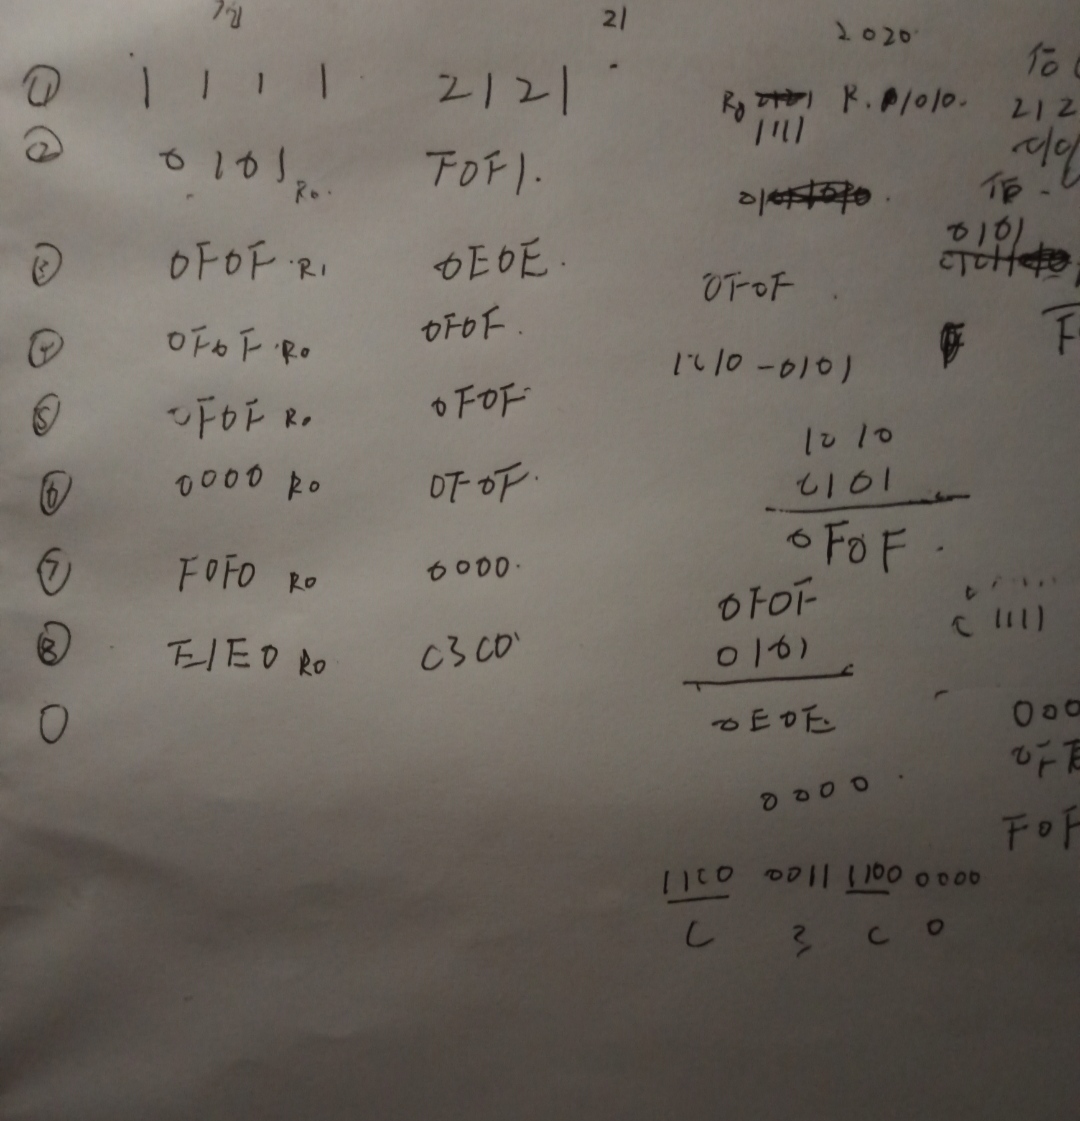 21
2020
① 1 1 1 1 2121
R0 1111 R. 1010.
212
② 0101 R0. F0F1.
0101
③ 0F0F R1 0E0E.
0F0F.
④ 0F0F R0 0F0F.
1010 - 0101
⑤ 0F0F R0 0F0F
1010
0101
⑥ 0000 R0 0F0F.
0F0F.
⑦ F0F0 R0 0000.
0F0F
0101
1111
⑧ E1E0 R0 C3C0
0E0E
000
0000
F0F
1100 0011 1100 0000
C 3 C 0